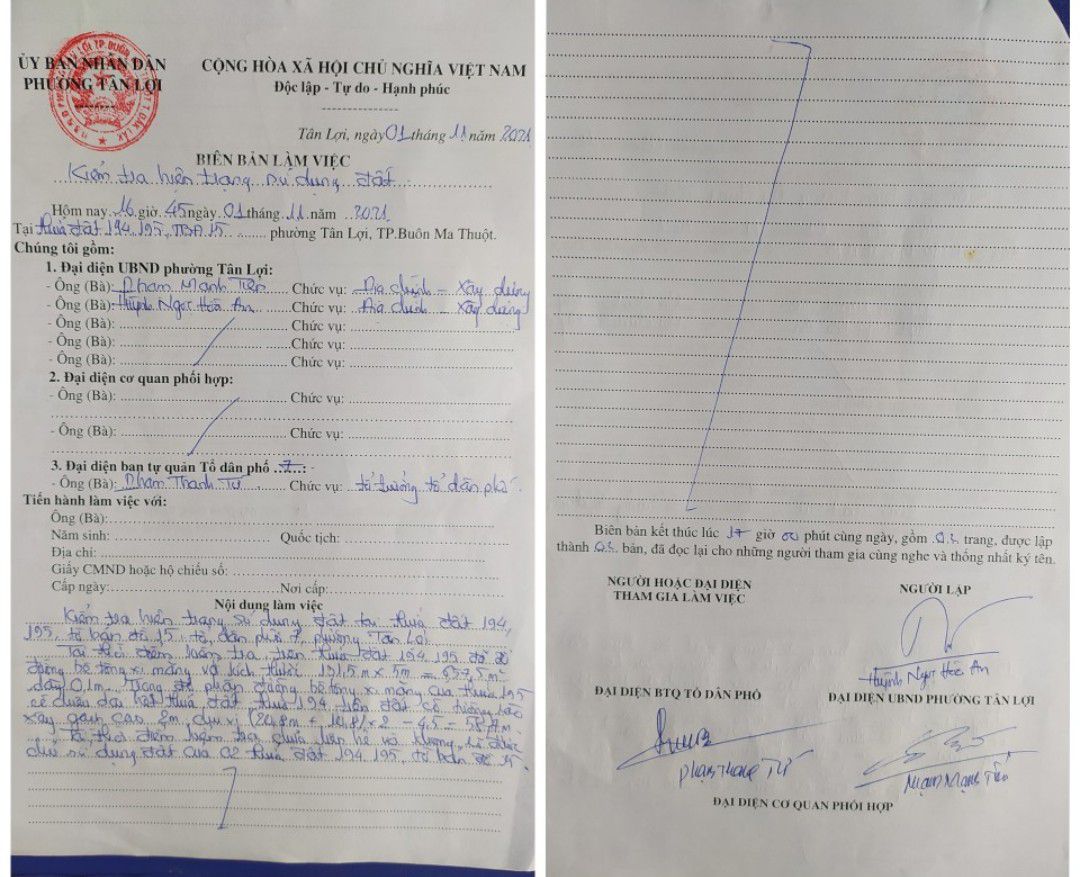 ỦY BAN NHÂN DÂN
PHƯỜNG TÂN LỢI
CỘNG HÒA XÃ HỘI CHỦ NGHĨA VIỆT NAM
Độc lập - Tự do - Hạnh phúc
Tân Lợi, ngày 01 tháng 11 năm 2021
BIÊN BẢN LÀM VIỆC
Kiểm tra hiện trạng sử dụng đất
Hôm nay, 16 giờ 45 ngày 01 tháng 11 năm 2021
Tại thửa đất 194, 195, TBĐ 15 phường Tân Lợi, TP.Buôn Ma Thuột.
Chúng tôi gồm:
1. Đại diện UBND phường Tân Lợi:
- Ông (Bà): Phạm Mạnh Tiến Chức vụ: Địa chính - Xây dựng
- Ông (Bà): Huỳnh Ngọc Hoà An Chức vụ: Địa chính - Xây dựng
- Ông (Bà): Chức vụ:
- Ông (Bà): Chức vụ:
- Ông (Bà): Chức vụ:
2. Đại diện cơ quan phối hợp:
- Ông (Bà): Chức vụ:
- Ông (Bà): Chức vụ:
3. Đại diện ban tự quản Tổ dân phố 7:
- Ông (Bà): Phạm Thanh Tứ Chức vụ: tổ trưởng tổ dân phố.
Tiến hành làm việc với:
Ông (Bà):
Năm sinh: Quốc tịch:
Địa chỉ:
Giấy CMND hoặc hộ chiếu số:
Cấp ngày: Nơi cấp:
Nội dung làm việc
Kiểm tra hiện trạng sử dụng đất tại thửa đất 194,
195, tờ bản đồ 15, tổ dân phố 7, phường Tân Lợi
Tại thời điểm kiểm tra trên thửa đất 194, 195 đã đổ
đường bê tông xi măng với kích thước 131,5m x 5m = 657,5m²
dày 0,1m. Trong đó phần đường bê tông xi măng của thửa 195
chiều dài hết thửa đất, thửa 194 trên đất có tường rào
xây gạch cao 2m, x 2 - 4,5 =
Tại thời điểm kiểm tra chưa liên hệ với
chủ sử dụng đất của 02 thửa đất 194, 195, tờ bản đồ 15.
Biên bản kết thúc lúc 17 giờ 00 phút cùng ngày, gồm trang, được lập
thành bản, đã đọc lại cho những người tham gia cùng nghe và thống nhất ký tên.
NGƯỜI HOẶC ĐẠI DIỆN
THAM GIA LÀM VIỆC
NGƯỜI LẬP
Huỳnh Ngọc Hoà An
ĐẠI DIỆN BTQ TỔ DÂN PHỐ
ĐẠI DIỆN UBND PHƯỜNG TÂN LỢI
Phạm Thanh Tứ
Phạm Mạnh Tiến
ĐẠI DIỆN CƠ QUAN PHỐI HỢP